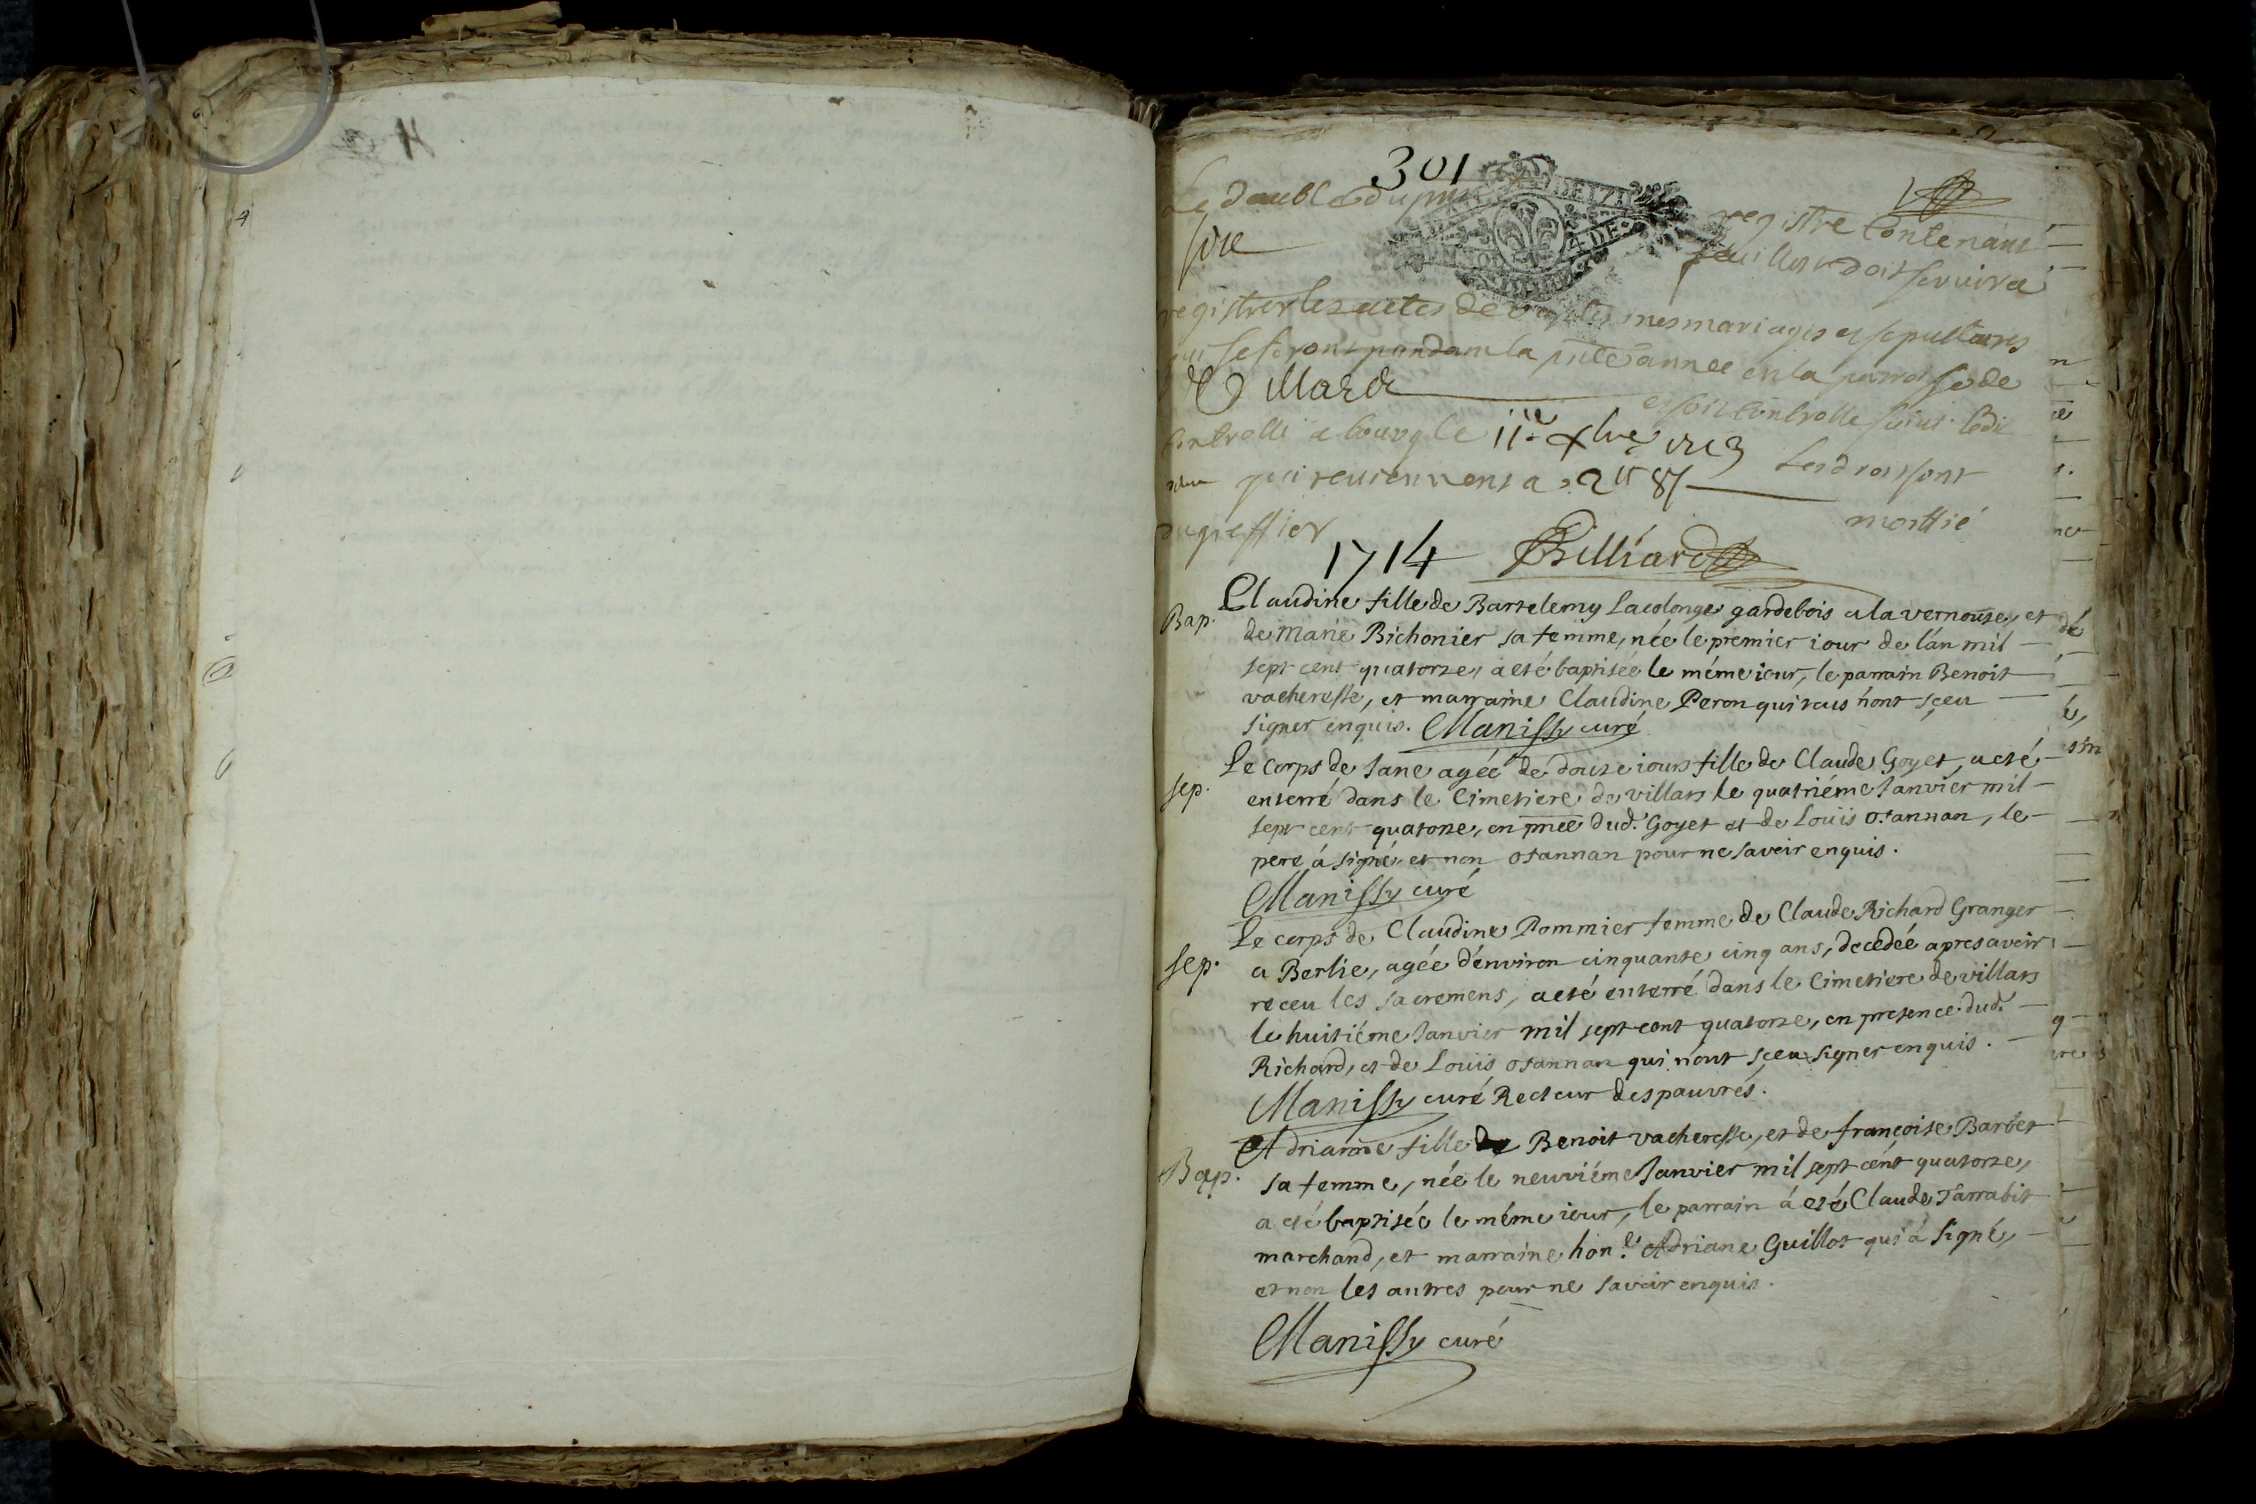 301
Le double du pnt registre contenant
seize feuillets doit servir a
registrer les actes de baptesmes mariages et sepultures
qui se feront pendant la pnte année en la parroisse de
Villars et soit controllé suivt. ledit
Controllé a bourg le 11e. xbre 1713 Les droits sont
qui reviennent a 2tt 8s moittié
du greffier
1714 Billiard
Bap. Claudine fille de Bartelemy Lacolonge gardebois a la vernouse, et
de Marie Bichonier sa femme, née le premier iour de l'an mil
sept cent quatorze, a eté baptisée le méme iour, le parrain Benoit
vacheresse, et marraine Claudine Peron qui tous n'ont sçeu
signer enquis. Manissy curé
sep. Le corps de Jane agée de douze iours fille de Claude Goyet, a eté
enterré dans le Cimetiere de villars le quatriéme Janvier mil
sept cent quatorze, en pnce dud. Goyet et de Loüis ozannan, le
pere á signé et non ozannan pour ne savoir enquis.
Manissy curé
sep. Le corps de Claudine Pommier femme de Claude Richard Granger
a Berlie, agée d'environ cinquante cinq ans, decedée apres avoir
receu les sacremens, a eté enterré dans le Cimetiere de villars
le huitiéme Janvier mil sept cent quatorze, en presence dud.
Richard, et de Loüis ozannan qui n'ont sçeu signer enquis.
Manissy curé Recteur des pauvres.
Bap. Adrianne fille de Benoit vacheresse, et de françoise Barbet
sa femme, née le neuviéme Janvier mil sept cent quatorze,
a eté baptisée le méme iour, le parrain á eté Claude Tarrabit
marchand, et marraine hon.le Adriane Guillot qui á signé,
et non les autres pour ne savoir enquis.
Manissy curé